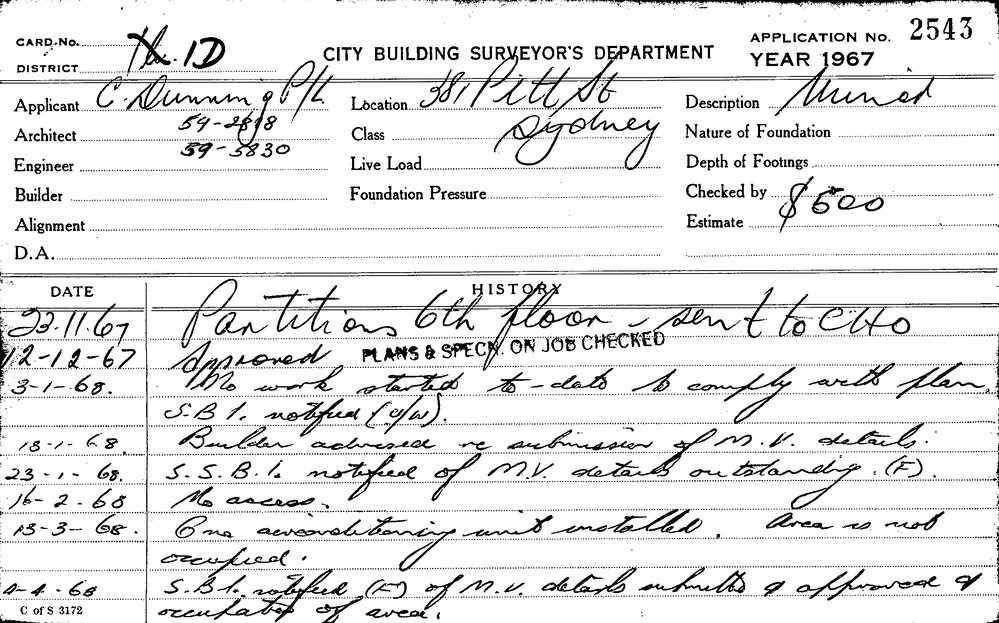 CARD No. The 1D
DISTRICT
CITY BUILDING SURVEYOR'S DEPARTMENT
APPLICATION No. 2543
YEAR 1967
Applicant C. Dunning P/L Location 381 Pitt St Description Minor
Architect 59-2898 Class Sydney Nature of Foundation
Engineer 59-5830 Live Load Depth of Footings
Builder Foundation Pressure Checked by
Alignment Estimate $500
D.A.
DATE HISTORY
23.11.67 Partitions 6th floor - sent to CHO
12-12-67 Approved PLANS & SPECN. ON JOB CHECKED
3-1-68. No work started to-date to comply with plan.
S.B.I. notified (U/W).
18-1-68. Builder advised re submission of M.V. details.
23-1-68. S.S.B.I. notified of M.V. details outstanding. (F).
16-2-68 No access.
13-3-68. One airconditioning unit installed. Area is not
occupied.
4-4-68 S.B.I. notified (F) of M.V. details submitted & approved &
occupation of area.
C of S 3172